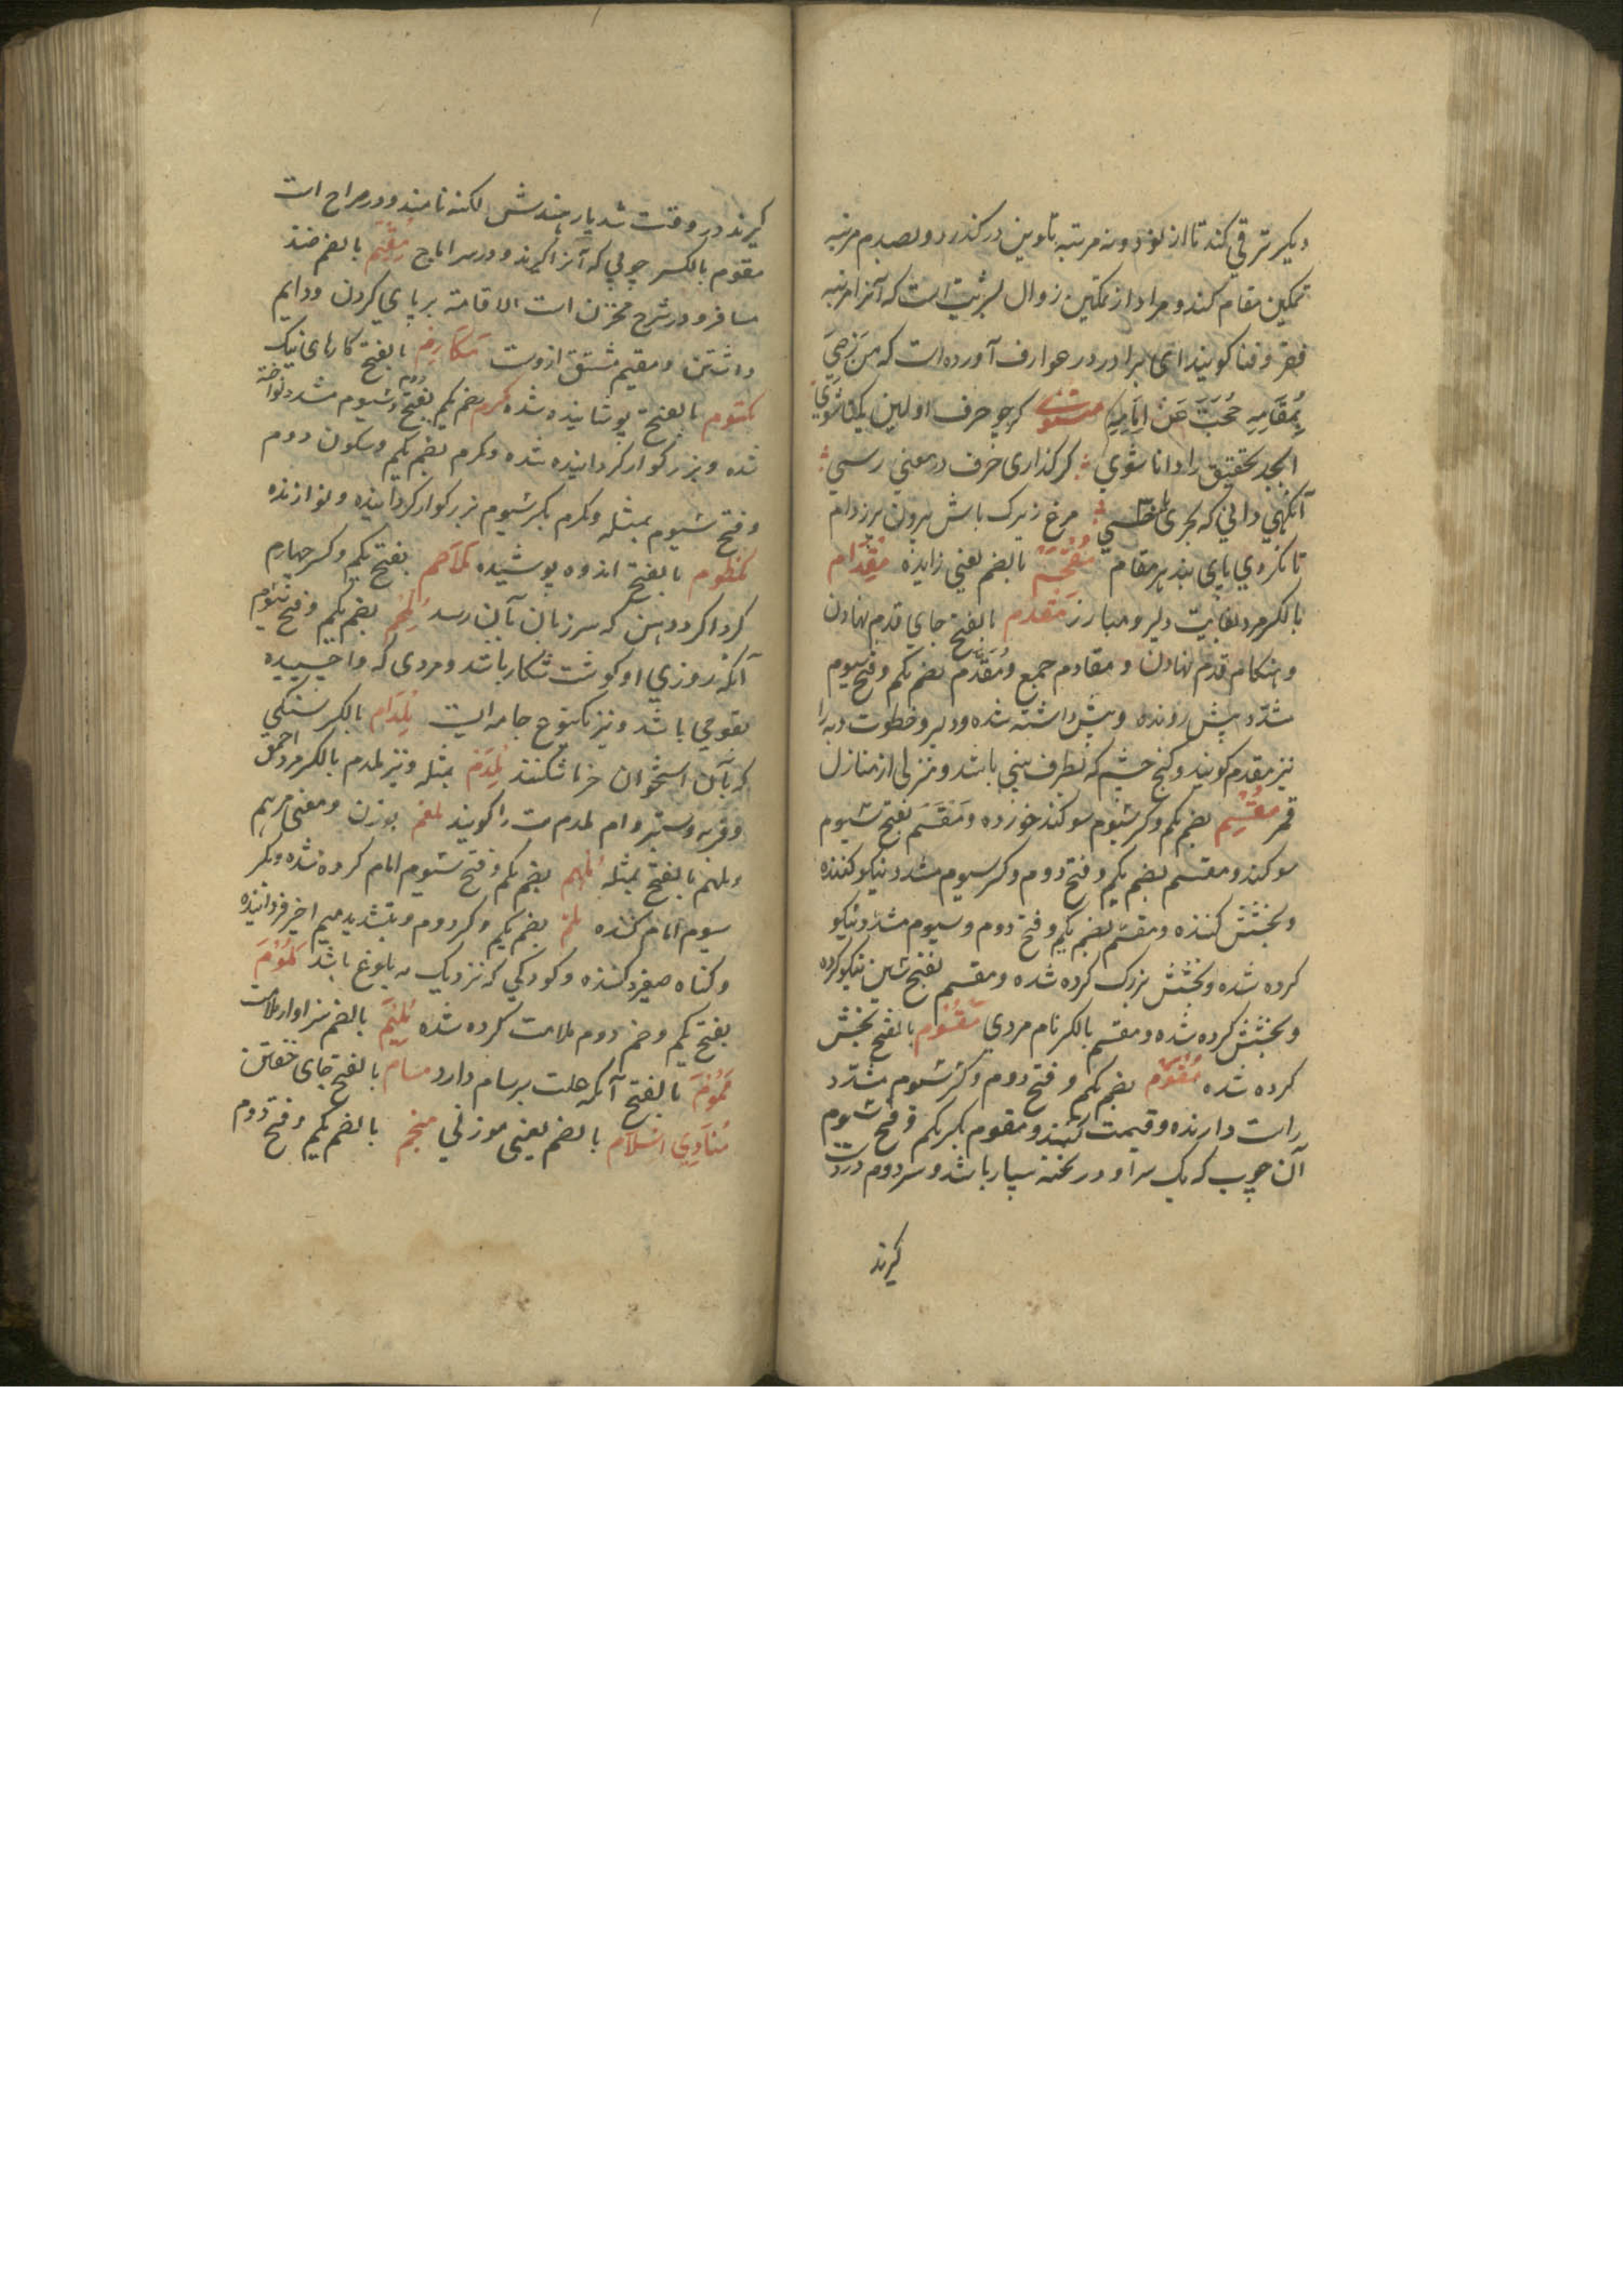 دیکیر ترقی کند تا از نود و نه مرتبه تلوین درگذرد و بصدم مرتبه
تمکین مقام کند و مراد از تمکین زوال بشریت است که آنرا مرتبه
فقر و فنا کویند ای برادر در عوارف آورده است که من رضی
بمقامه حجب عن امامه مثنوی کرچه حرف اولین یکتا شوی
ابجد تحقیق را دانا شوی کر گذاری حرف در معنی رسی
آنکهی دانی که بحری یا خسی مرغ زیرک باش بیرون پر ز دام
تا نکردی پای بند هر مقام مقحم بالضم یعنی زایده مقدام
بالکسر مرد بغایت دلیر و مبارز مقدم بالفتح جای قدم نهادن
و هنکام قدم نهادن و مقادم جمع و مقدم بضم یکم و فتح سیوم
مشدد پیش رونده و پیش داشته شده و دلیر و
نیز مقدم کویند و کنج چشم که بطرف بینی باشد و منزلی از منازل
قمر مقسم بضم یکم و کسر سیوم سوکند خورده و مقسم بفتح سیوم
سوکند و مقسم بضم یکم و فتح دوم و کسر سیوم مشدد نیکو کننده
و بخشش کننده و مقسم بضم یکم و فتح دوم و سیوم مشدد نیکو
کرده شده و بخشش بزرک کرده شده و مقسم بفتح سین نیکو کرده
و بخشش کرده شده و مقسم بالکسر نام مردی مقسوم بالفتح بخش
کرده شده مقوم بضم یکم و فتح دوم و کسر سیوم مشدد
راست دارنده و قیمت کننده و مقوم بکسر یکم و فتح سیوم
آن چوب که یک سر او در سپار باشد و سر دوم در دست
کیرند
کیرند در وقت شدیار هندش لکنه نامند و در صراح است
مقوم بالکسر چوبی که آنرا کیرند و در سر اماج مقیم بالضم ضد
مسافر و در شرح مخزن است الاقامة بر پای کردن و دایم
داشتن و مقیم مشتق ازوست مکارم بالفتح کارهای نیک
مکتوم بالفتح پوشانیده شده مکرم بضم یکم بفتح دوم و سیوم مشدد نواخته
شده و بزرکوار کردانیده شده و مکرم بضم یکم و سکون دوم
و فتح سیوم بمثله و مکرم بکسر سیوم بزرکوار کرداننده و نوازنده
مکظوم بالفتح اندوه پوشیده ملاحم بفتح یکم و کسر چهارم
کرداکرد دهن که سر زبان بآن رسد ملحم بضم یکم و فتح سیوم
آنکه روزی او کوشت شکار باشد و مردی که وا چسپیده
بقومی باشد و نیز یکنوع جامه ایست ملدام بالکسر سنکی
که بآن استخوان خرما شکنند ملدم بمثله و نیز ملدم بالکسر مرد احمق
و فربه و ستبر و ام ملدم تب را کویند ملغم بوزن و معنی مرهم
و ملهم بالفتح بمثله ملهم بضم یکم و فتح سیوم الهام کرده شده و بکسر
سیوم الهام کننده ملم بضم یکم و کسر دوم و بتشدید میم اخیر فرود آینده
و کناه صغیره کننده و کودکی که نزدیک به بلوغ باشد ملوم
بفتح یکم و ضم دوم ملامت کرده شده ملیم بالضم سزاوار ملامت
مموم بالفتح آنکه علت برسام دارد منام بالفتح جای خفتن
منادی اسلام بالضم یعنی موذنی منجم بالضم یکم و فتح دوم